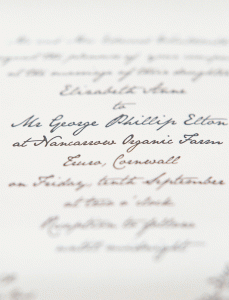 the pleasure of your
at the marriage of their daughter
Elizabeth Anne
to
Mr George Phillip Elton
at Nancarrow Organic Farm
Truro, Cornwall
on Friday, tenth September
at two o'clock
Reception to follow
until midnight